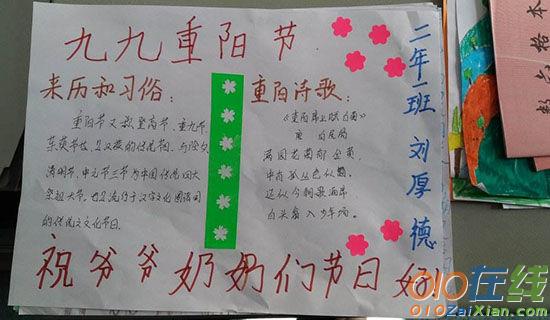 九九重阳节
来历和习俗：
重阳节又称登高节、重九节、
茱萸节
清明节、中元节三节为中国传统四大
祭祖大节。也是流行于汉字文化圈诸国
的传统文化节日。
重阳诗歌：
唐 白居易
满园花菊郁金黄，
中有孤丛色似霜。
还似今朝歌酒席，
白头翁入少年场。
二年一班 刘厚德
祝爷爷奶奶们节日好
数学格本
010在线
010ZaiXian.com